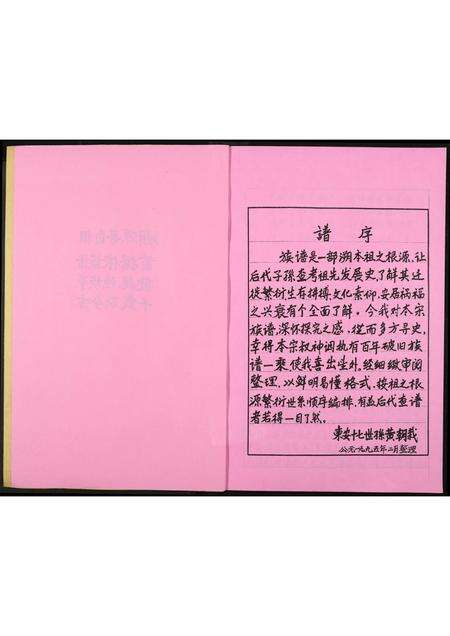 譜序
族谱是一部溯本祖之根源,让
后代子孫查考祖先发展史,了解其迁
徙繁衍生存拼搏,文化素仰,安居祸福
之兴衰有个全面了解。今我对本宗
族谱,深怀探究之感,從而多方寻史,
幸得本宗叔神调执有百年破旧族
谱一乘,使我喜出望外,经细緻审阅
整理,以鲜明易懂格式,按祖之根
源繁衍世系顺序编排,有益后代查谱
者若得一目了然。
東安十七世孫黄朝栽
公元一九九五年二月整理